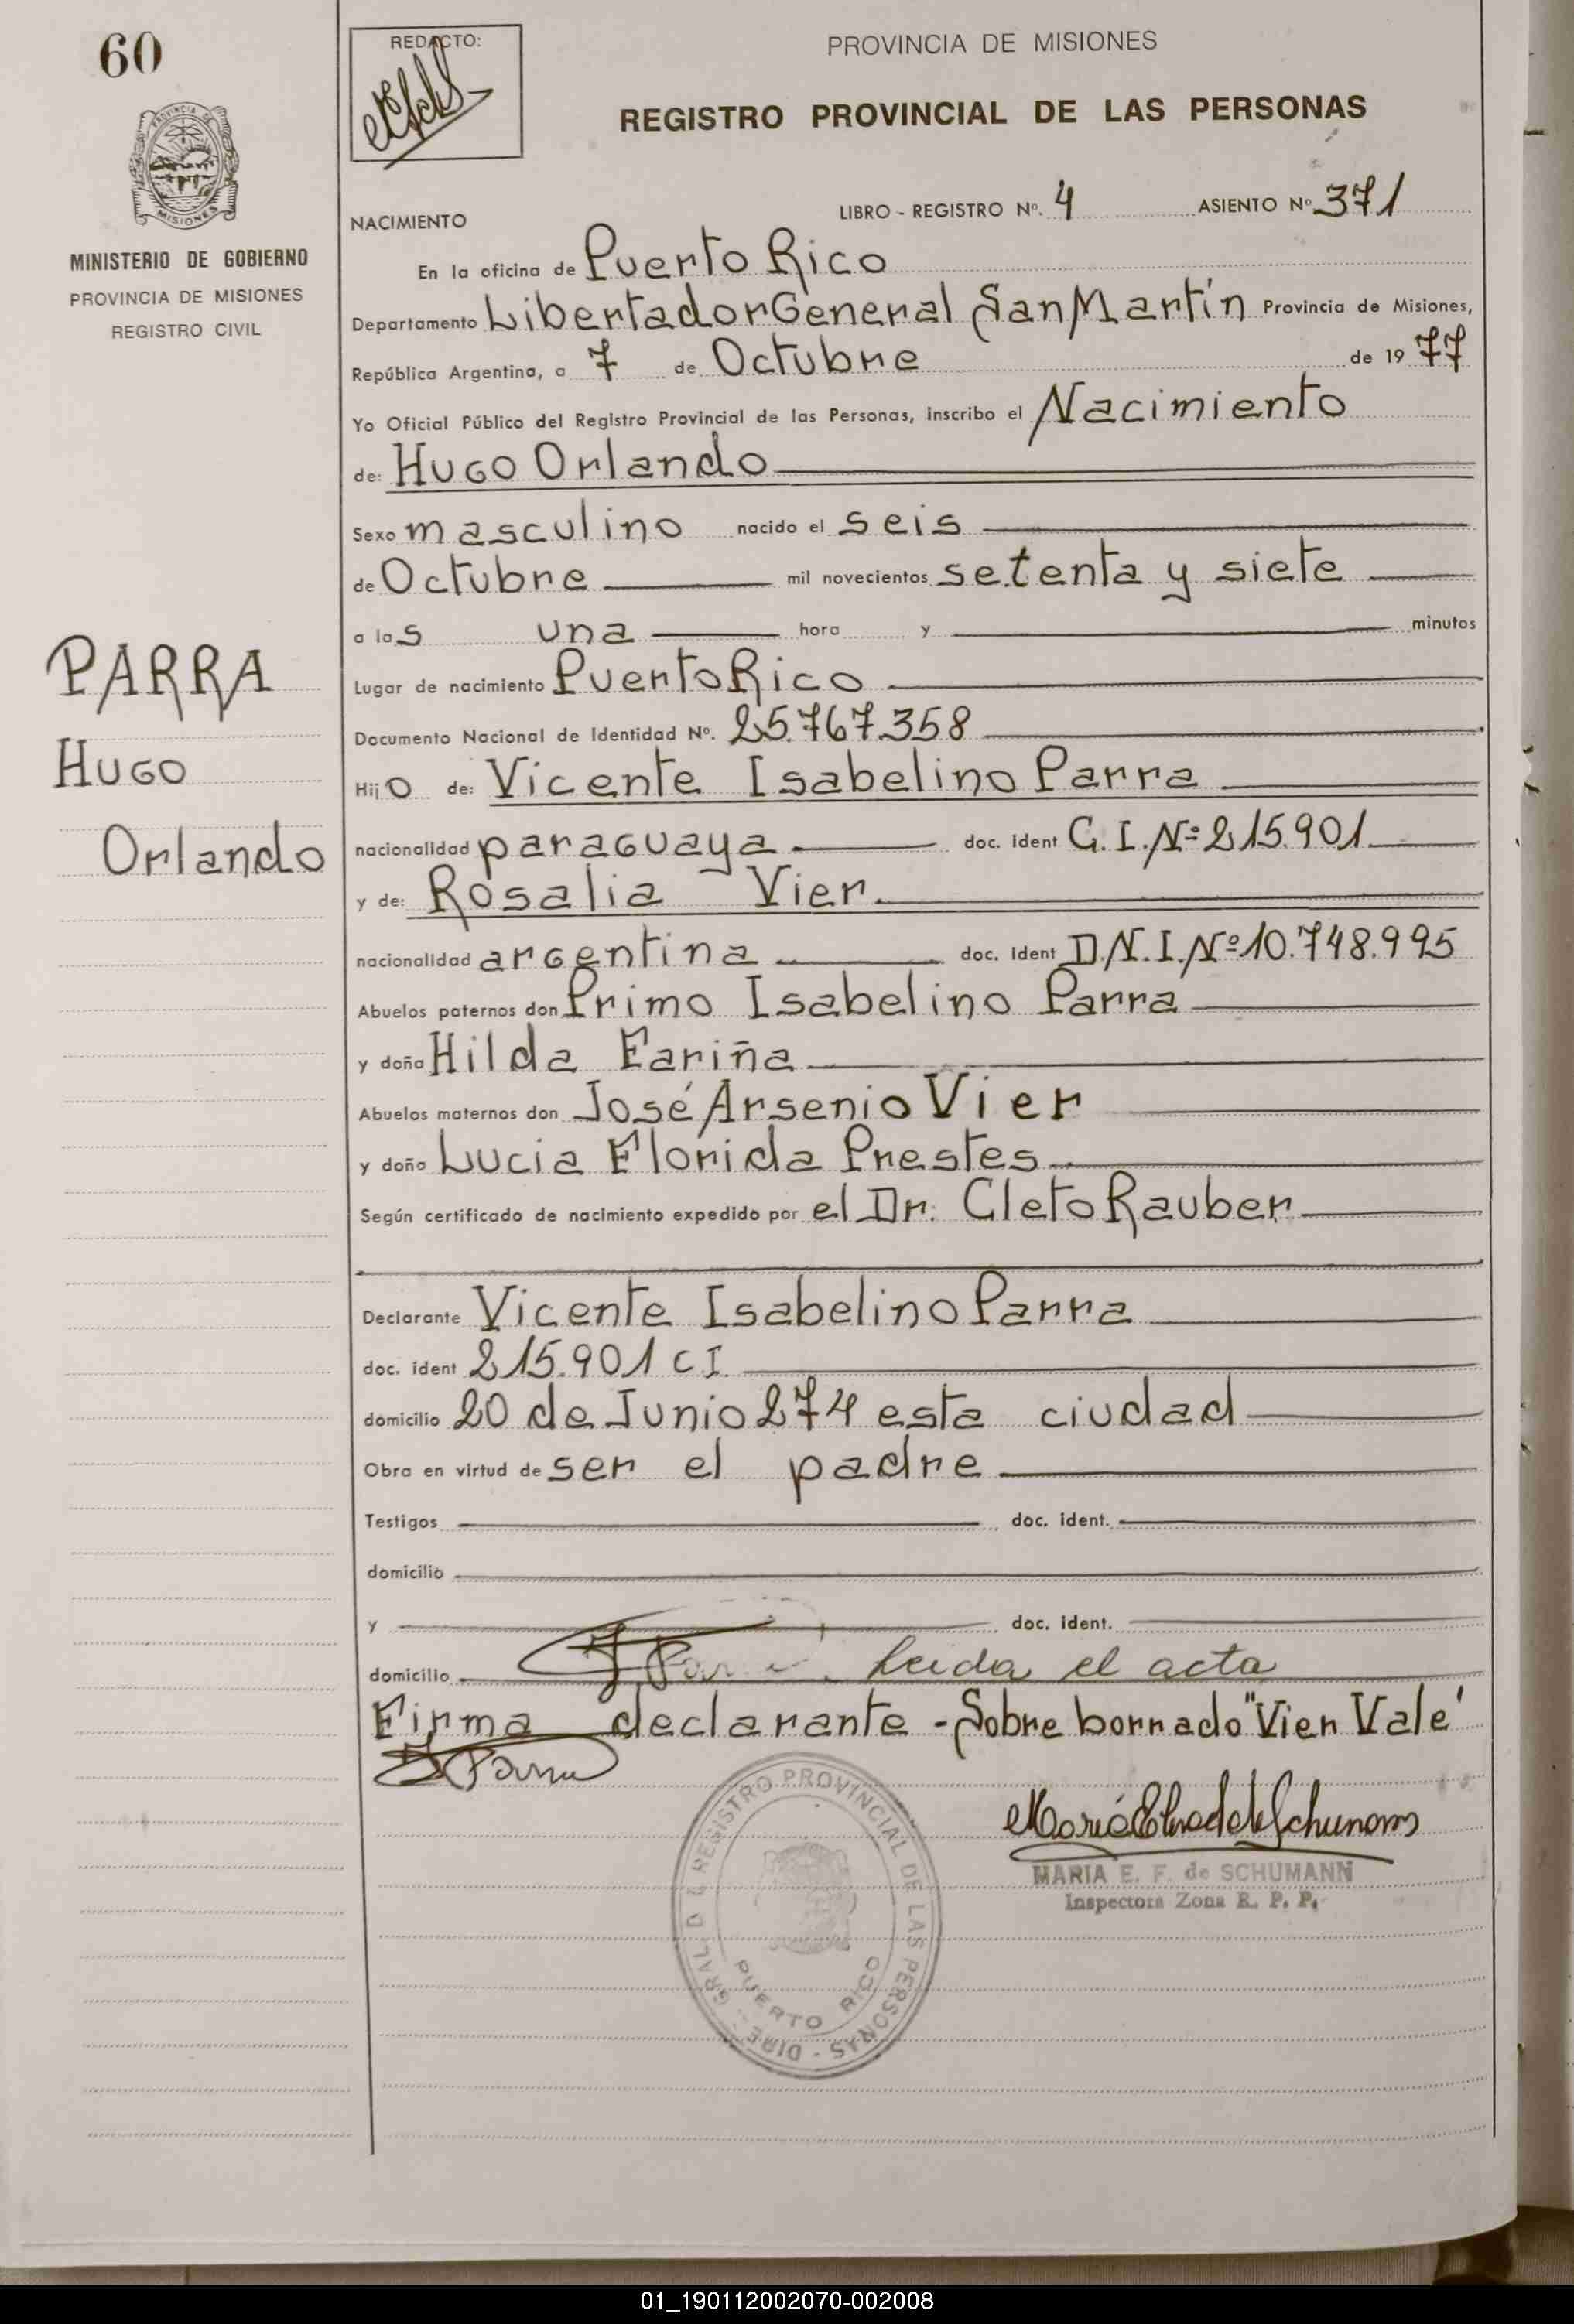 60
REDACTO:
PROVINCIA DE MISIONES
REGISTRO PROVINCIAL DE LAS PERSONAS
PROVINCIA DE
MISIONES
MINISTERIO DE GOBIERNO
PROVINCIA DE MISIONES
REGISTRO CIVIL
NACIMIENTO LIBRO - REGISTRO Nº. 4 ASIENTO Nº 371
En la oficina de Puerto Rico
Departamento Libertador General San Martín Provincia de Misiones,
República Argentina, a 7 de Octubre de 19 77
Yo Oficial Público del Registro Provincial de las Personas, inscribo el Nacimiento
de: Hugo Orlando
Sexo masculino nacido el seis
de Octubre mil novecientos setenta y siete
a las una hora y minutos
PARRA
Hugo
Orlando
Lugar de nacimiento Puerto Rico
Documento Nacional de Identidad Nº. 25.767.358
Hijo de: Vicente Isabelino Parra
nacionalidad paraguaya doc. ident C.I.Nº 215.901
y de: Rosalia Vier
nacionalidad argentina doc. ident D.N.I.Nº 10.748.995
Abuelos paternos don Primo Isabelino Parra
y doña Hilda Fariña
Abuelos maternos don José Arsenio Vier
y doña Lucia Florida Prestes
Según certificado de nacimiento expedido por el Dr. Cleto Rauber
Declarante Vicente Isabelino Parra
doc. ident 215.901 CI
domicilio 20 de Junio 274 esta ciudad
Obra en virtud de ser el padre
Testigos doc. ident.
domicilio
y doc. ident.
domicilio Parra. Leida el acta
Firma declarante - Sobre borrado "Vier Vale"
Parra
REGISTRO PROVINCIAL DE LAS PERSONAS - DIRE
GRAL. D
PUERTO RICO
MARIA E. F. de SCHUMANN
Inspectora Zona R. P. P.
01_190112002070-002008